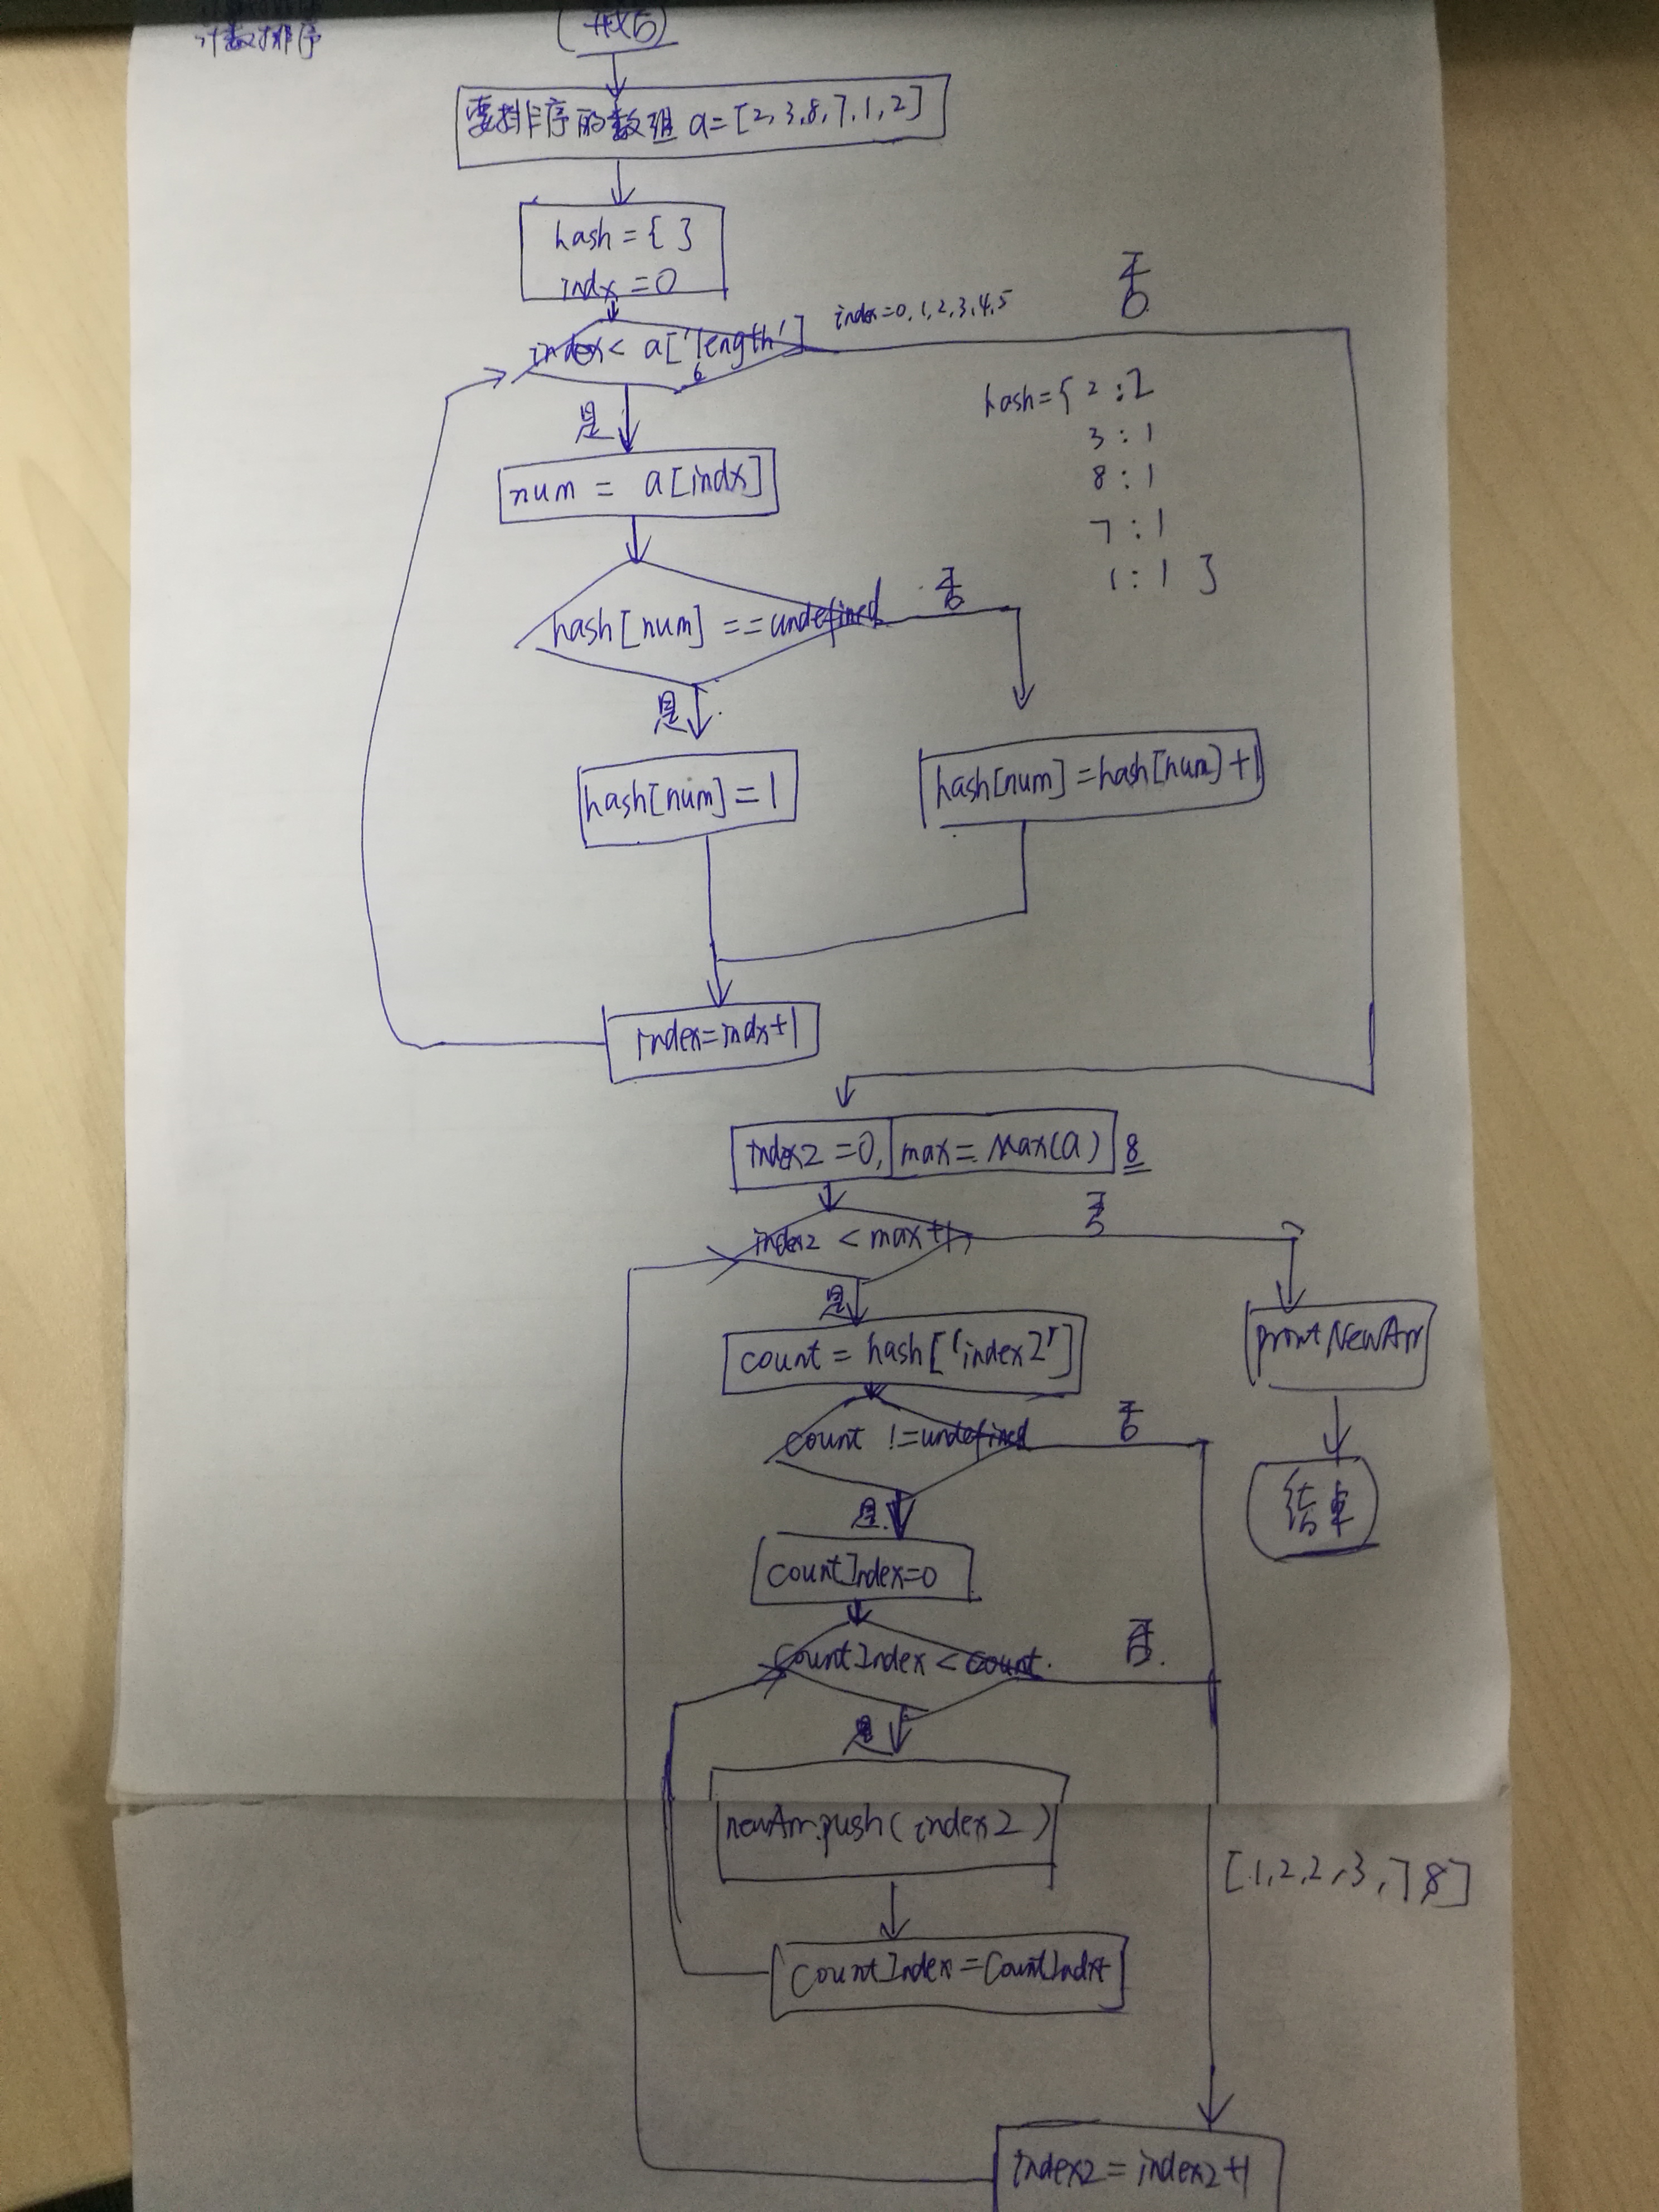 计数排序
开始
要排序的数组 a=[2,3,8,7,1,2]
hash={ }
indx=0
index< a['length']
6
index=0,1,2,3,4,5
否
hash={ 2:2
3:1
8:1
7:1
1:1 }
是
num = a[indx]
hash[num]==undefined
否
是
hash[num]=1
hash[num]=hash[num]+1
index=indx+1
index2=0, max=Max(a) 8
index2 < max+1
否
是
count=hash['index2']
print NewArr
count !=undefined
否
结束
是
countIndex=0
countIndex<count
否
是
newArr.push(index2)
[1,2,2,3,7,8]
countIndex=CountIndx+
index2=index2+1